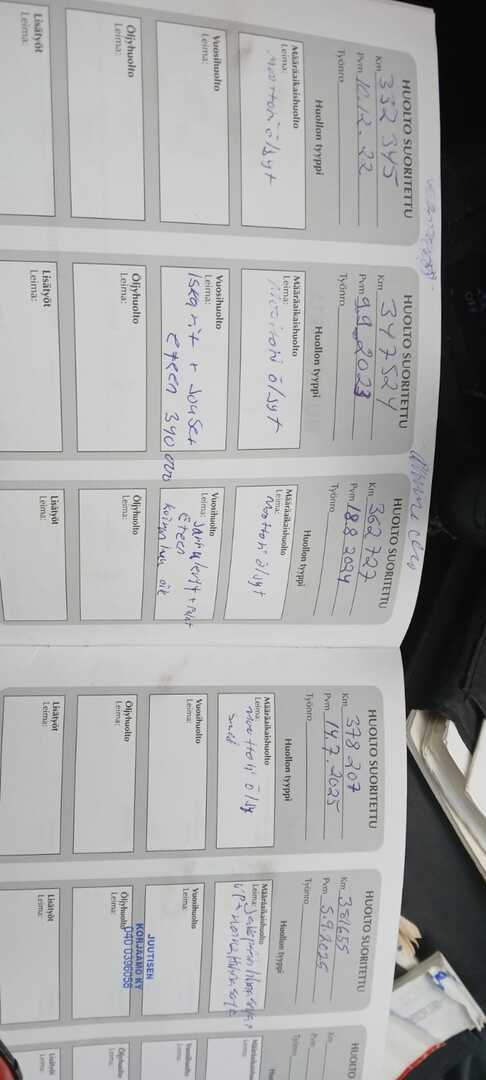 HUOLTO SUORITETTU
Km 332 345
Pvm 10.12.22
Työnro
Huollon tyyppi
Määräaikaishuolto
Leima:
Moottori öljyt
Vuosihuolto
Leima:
Öljyhuolto
Leima:
Lisätyöt
Leima:
HUOLTO SUORITETTU
Km 347524
Pvm 9.9.2023
Työnro
Huollon tyyppi
Määräaikaishuolto
Leima:
Moottori öljyt
Vuosihuolto
Leima:
Iskarit + jouset
eteen 340 000
Öljyhuolto
Leima:
Lisätyöt
Leima:
HUOLTO SUORITETTU
Km 362 727
Pvm 18.8 2024
Työnro
Huollon tyyppi
Määräaikaishuolto
Leima:
Moottori öljyt
Vuosihuolto
Leima:
Jarrulevyt + palat
Eteen
Öljyhuolto
Leima:
Lisätyöt
Leima:
HUOLTO SUORITETTU
Km 378 207
Pvm 14.7.2025
Työnro
Huollon tyyppi
Määräaikaishuolto
Leima:
Moottori öljy
Vuosihuolto
Leima:
Öljyhuolto
Leima:
Lisätyöt
Leima:
HUOLTO SUORITETTU
Km 381655
Pvm 5.9.2025
Työnro
Huollon tyyppi
Määräaikaishuolto
Leima:
Vuosihuolto
Leima:
JUUTISEN
KORJAAMO KY
040 0396058
Öljyhuolto
Leima:
Lisätyöt
Leima:
HUOLTO
Km
Pvm
Työnro
Määräaikaishuolto
Leima:
Vuosihuolto
Leima:
Öljyhuolto
Leima:
Lisätyöt
Leima: